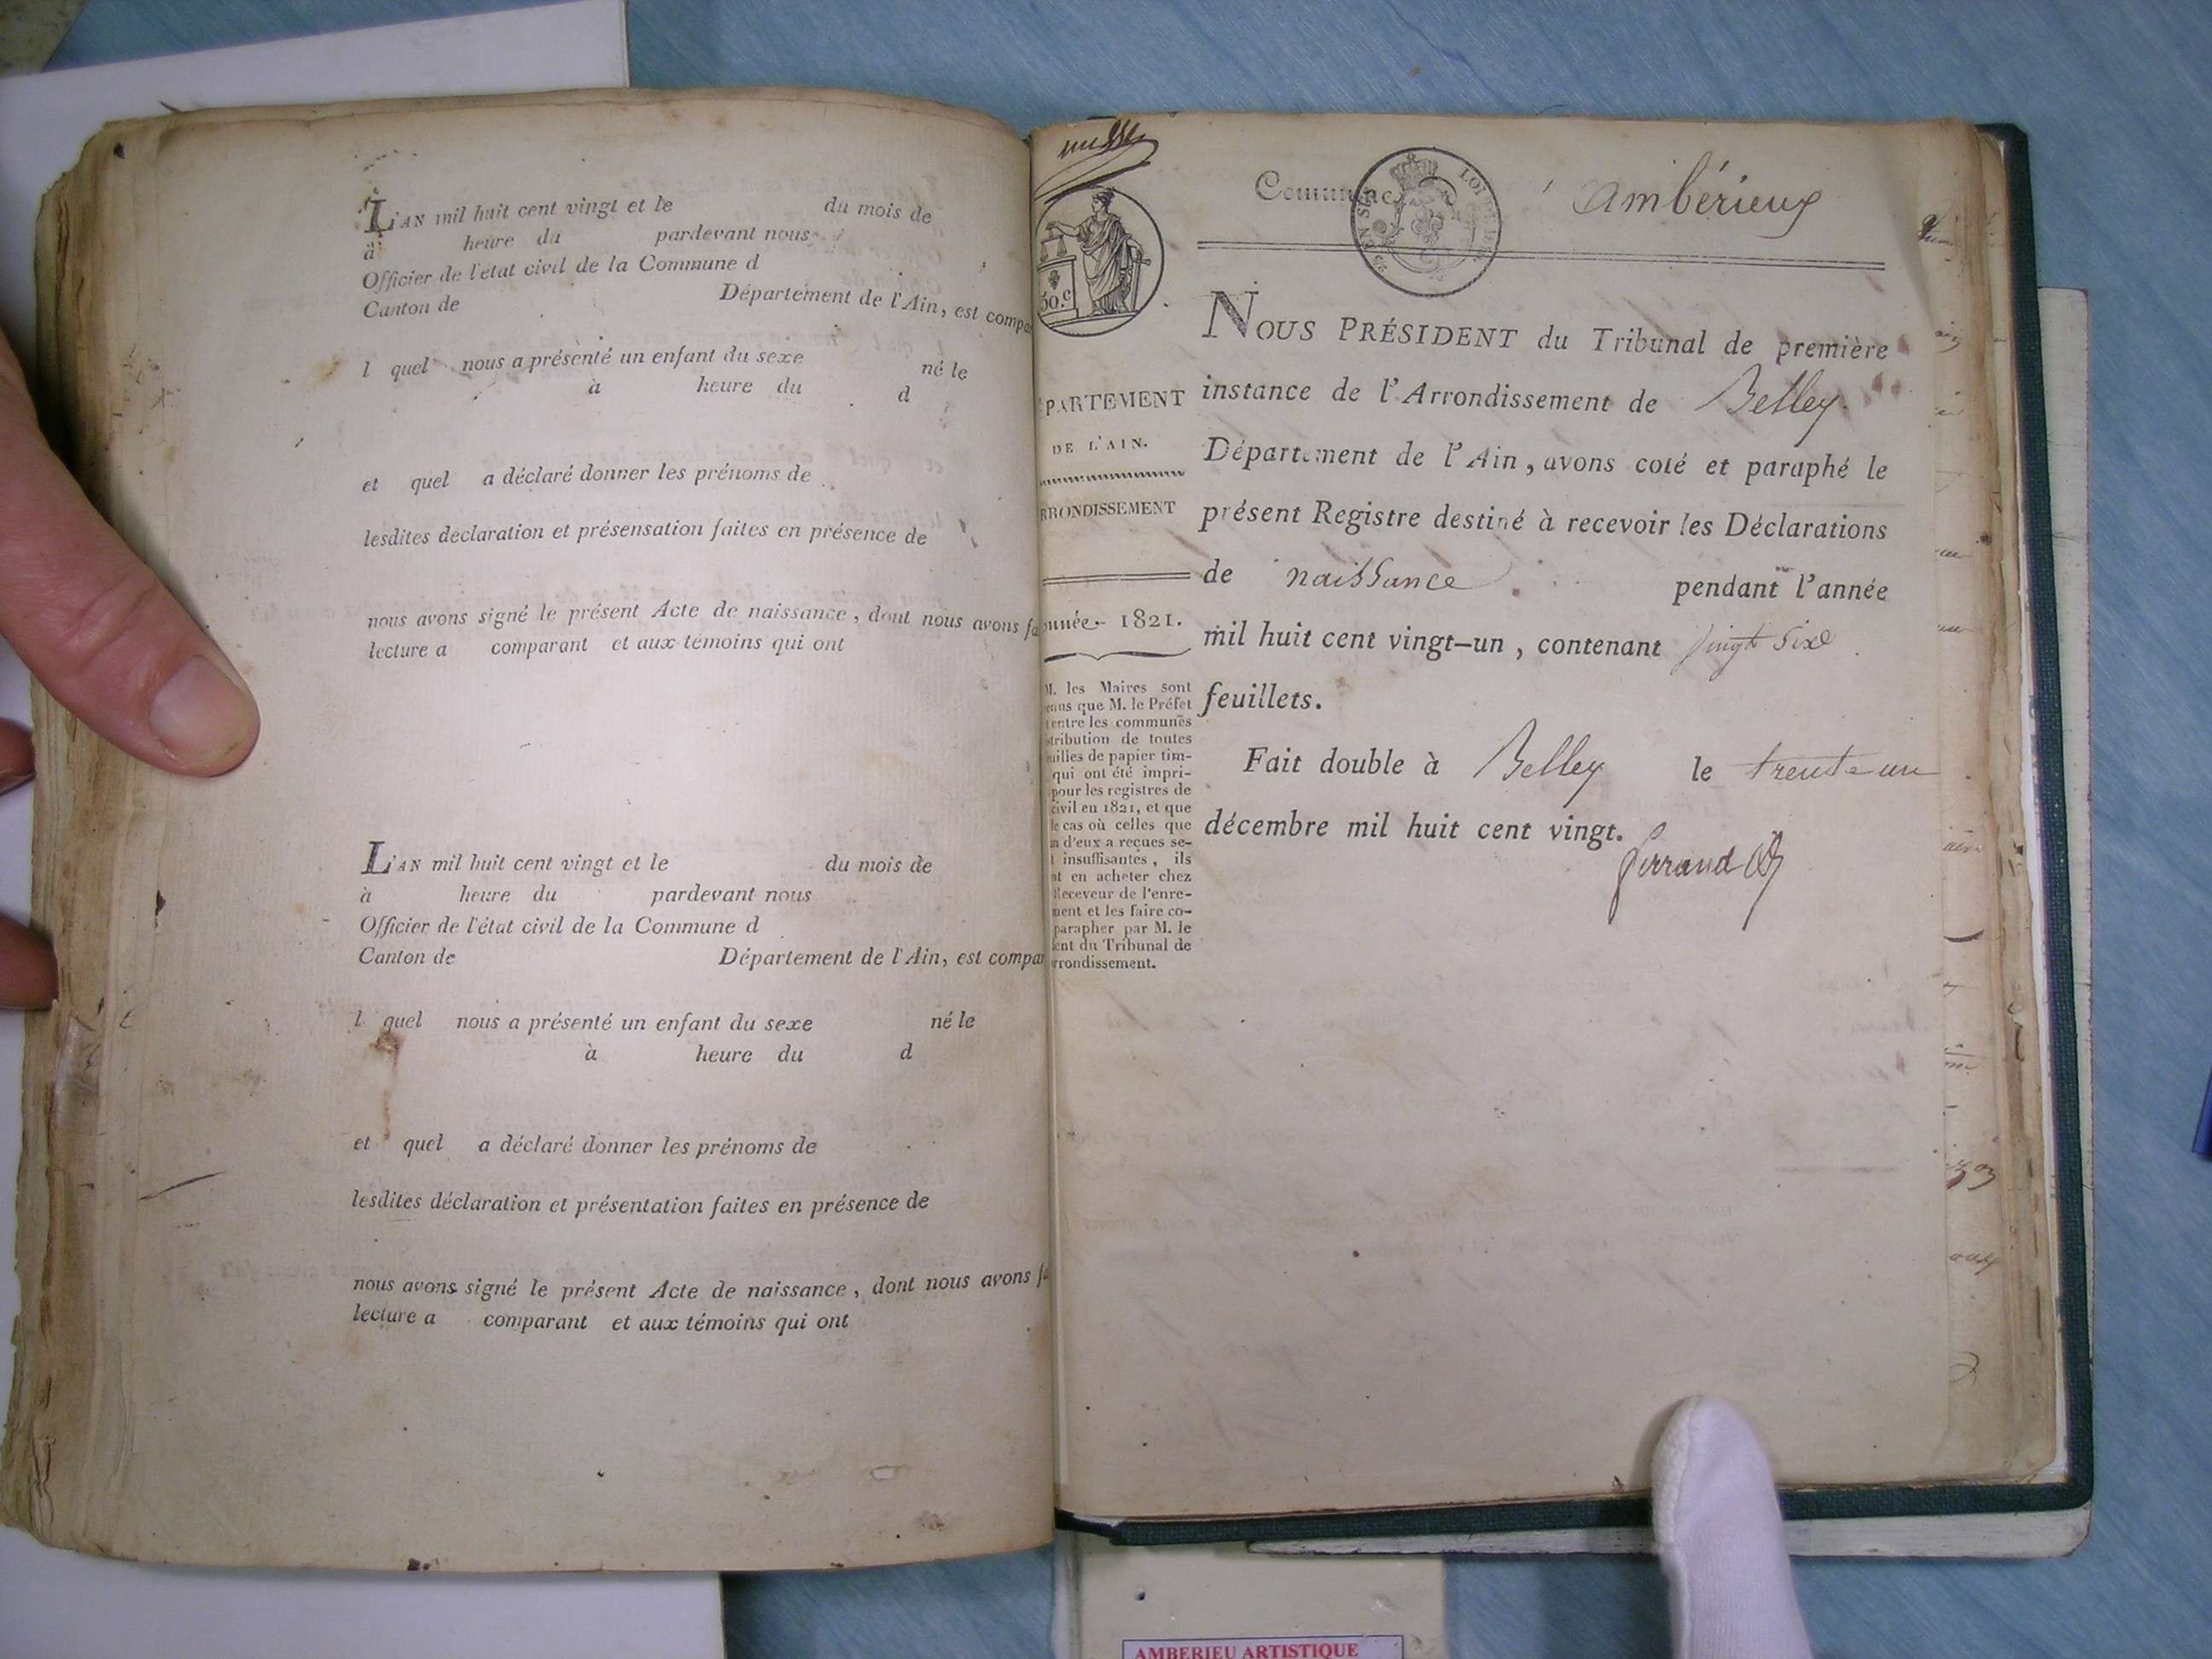 L'AN mil huit cent vingt et le du mois de
à heure du pardevant nous
Officier de l'état civil de la Commune d
Canton de Département de l'Ain, est compa
l quel nous a présenté un enfant du sexe né le
à heure du d
et quel a déclaré donner les prénoms de
lesdites déclaration et présensation faites en présence de
nous avons signé le présent Acte de naissance, dont nous avons fa
lecture a comparant et aux témoins qui ont
L'AN mil huit cent vingt et le du mois de
à heure du pardevant nous
Officier de l'état civil de la Commune d
Canton de Département de l'Ain, est compa
l quel nous a présenté un enfant du sexe né le
à heure du d
et quel a déclaré donner les prénoms de
lesdites déclaration et présentation faites en présence de
nous avons signé le présent Acte de naissance, dont nous avons fa
lecture a comparant et aux témoins qui ont
50.c
PARTEMENT
DE L'AIN.
RRONDISSEMENT
nnée 1821.
M. les Maires sont
enus que M. le Préfet
entre les communes
stribution de toutes
uilles de papier tim-
qui ont été impri-
pour les registres de
civil en 1821, et que
le cas où celles que
n d'eux a reçues se-
t insuffisantes, ils
nt en acheter chez
Receveur de l'enre-
ment et les faire co-
parapher par M. le
ent du Tribunal de
rrondissement.
Commune Ambérieux
NOUS PRÉSIDENT du Tribunal de première
instance de l'Arrondissement de Belley.
Département de l'Ain, avons coté et paraphé le
présent Registre destiné à recevoir les Déclarations
de naissance pendant l'année
mil huit cent vingt-un, contenant vingt Six
feuillets.
Fait double à Belley le trente un
décembre mil huit cent vingt.
AMBERIEU ARTISTIQUE